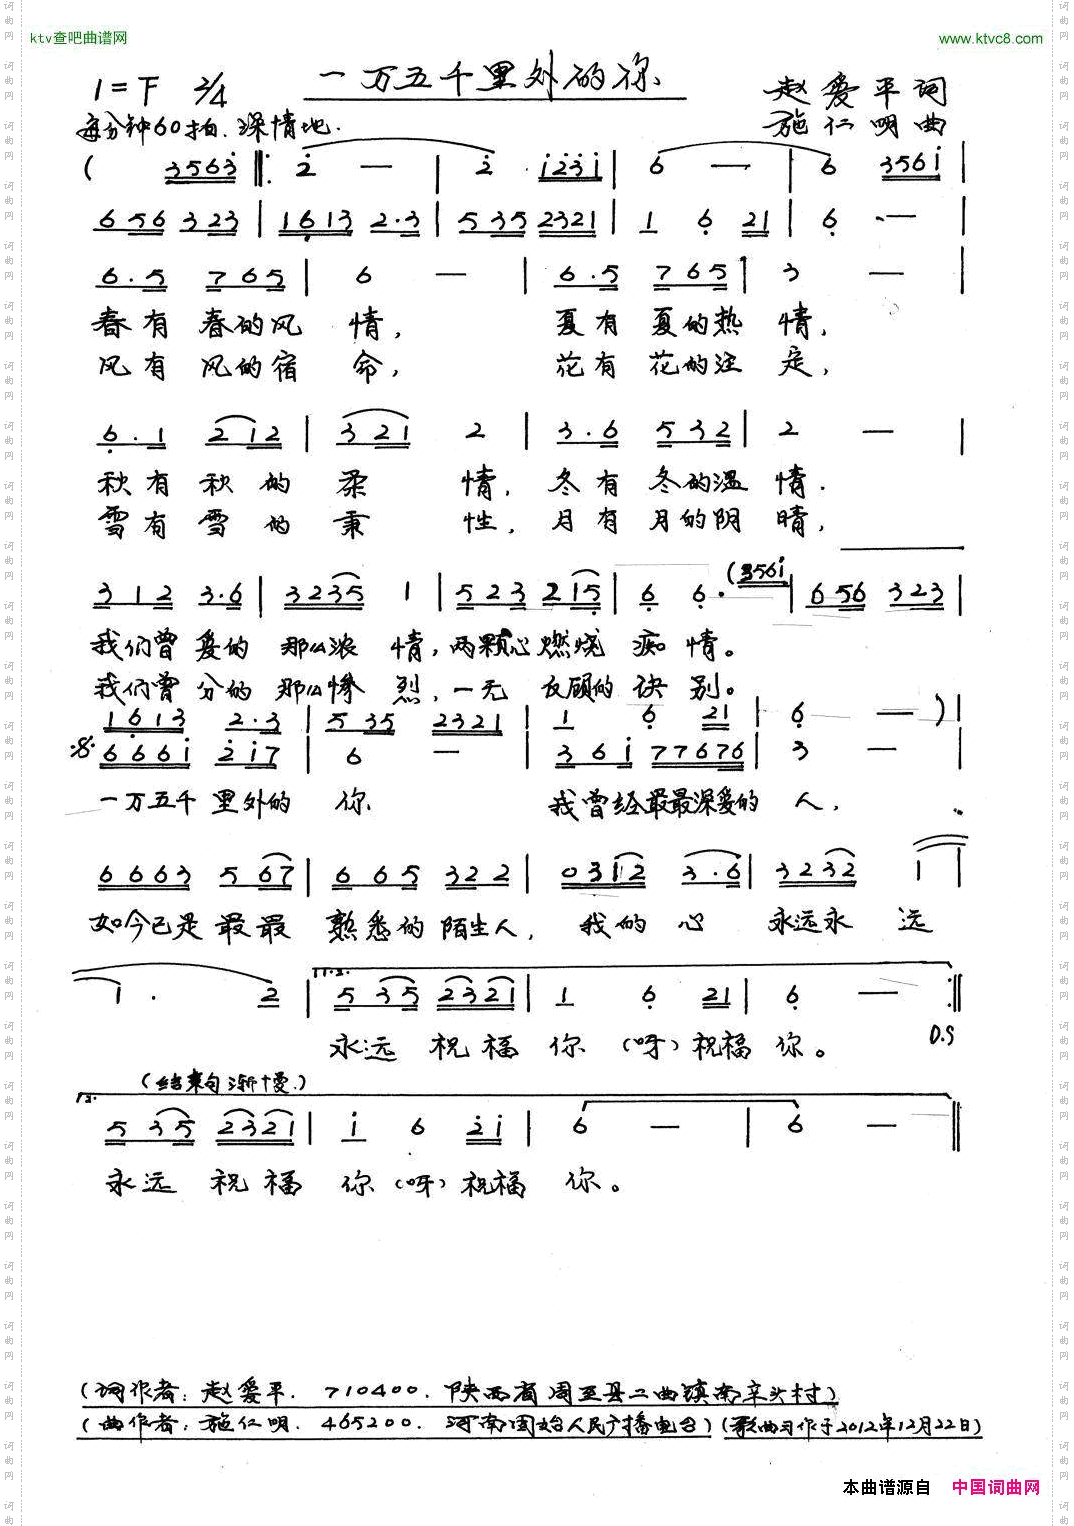 ktv查吧曲谱网
www.ktvc8.com
一万五千里外的你
1=F 2/4
赵爱平词
每分钟60拍、深情地.
施仁明曲
( 3563 ‖: 2 — | 2 1231 | 6 — | 6 3561 |
656 323 | 1613 2·3 | 535 2321 | 1 6 21 | 6 · — |
6·5 765 | 6 — | 6·5 765 | 3 — |
春有 春的风 情, 夏有 夏的热 情,
风有 风的宿 命, 花有 花的注 定,
6·1 212 | 321 2 | 3·6 532 | 2 — |
秋有 秋的 柔 情, 冬有 冬的温 情.
雪有 雪的 秉 性, 月有 月的阴 晴,
(3561
312 3·6 | 3235 1 | 523 215 | 6 6· | 656 323 |
我们曾 爱的 那么浓 情,两颗心燃烧 痴 情。
我们曾 分的 那么惨 烈,一无 反顾的 诀 别。
1613 2·3 | 535 2321 | 1 6 21 | 6 — ) |
6661 217 | 6 — | 361 77676 | 3 — |
一万五千 里外的 你 我曾经最最深爱的 人,
6663 567 | 665 322 | 0312 3·6 | 3232 1 |
如今已是 最最 熟悉的 陌生人, 我的 心 永远永 远
1.2.
1 · 2 | 535 2321 | 1 6 21 | 6 — :‖
永远 祝福 你 (呀) 祝福 你。 D.S
(结束句渐慢.)
3.
535 2321 | 1 6 21 | 6 — | 6 — ‖
永远 祝福 你 (呀) 祝福 你。
(词作者: 赵爱平. 710400. 陕西省周至县二曲镇南辛头村)
(曲作者: 施仁明. 465200. 河南固始人民广播电台) (歌曲习作于2012年12月22日)
本曲谱源自 中国词曲网